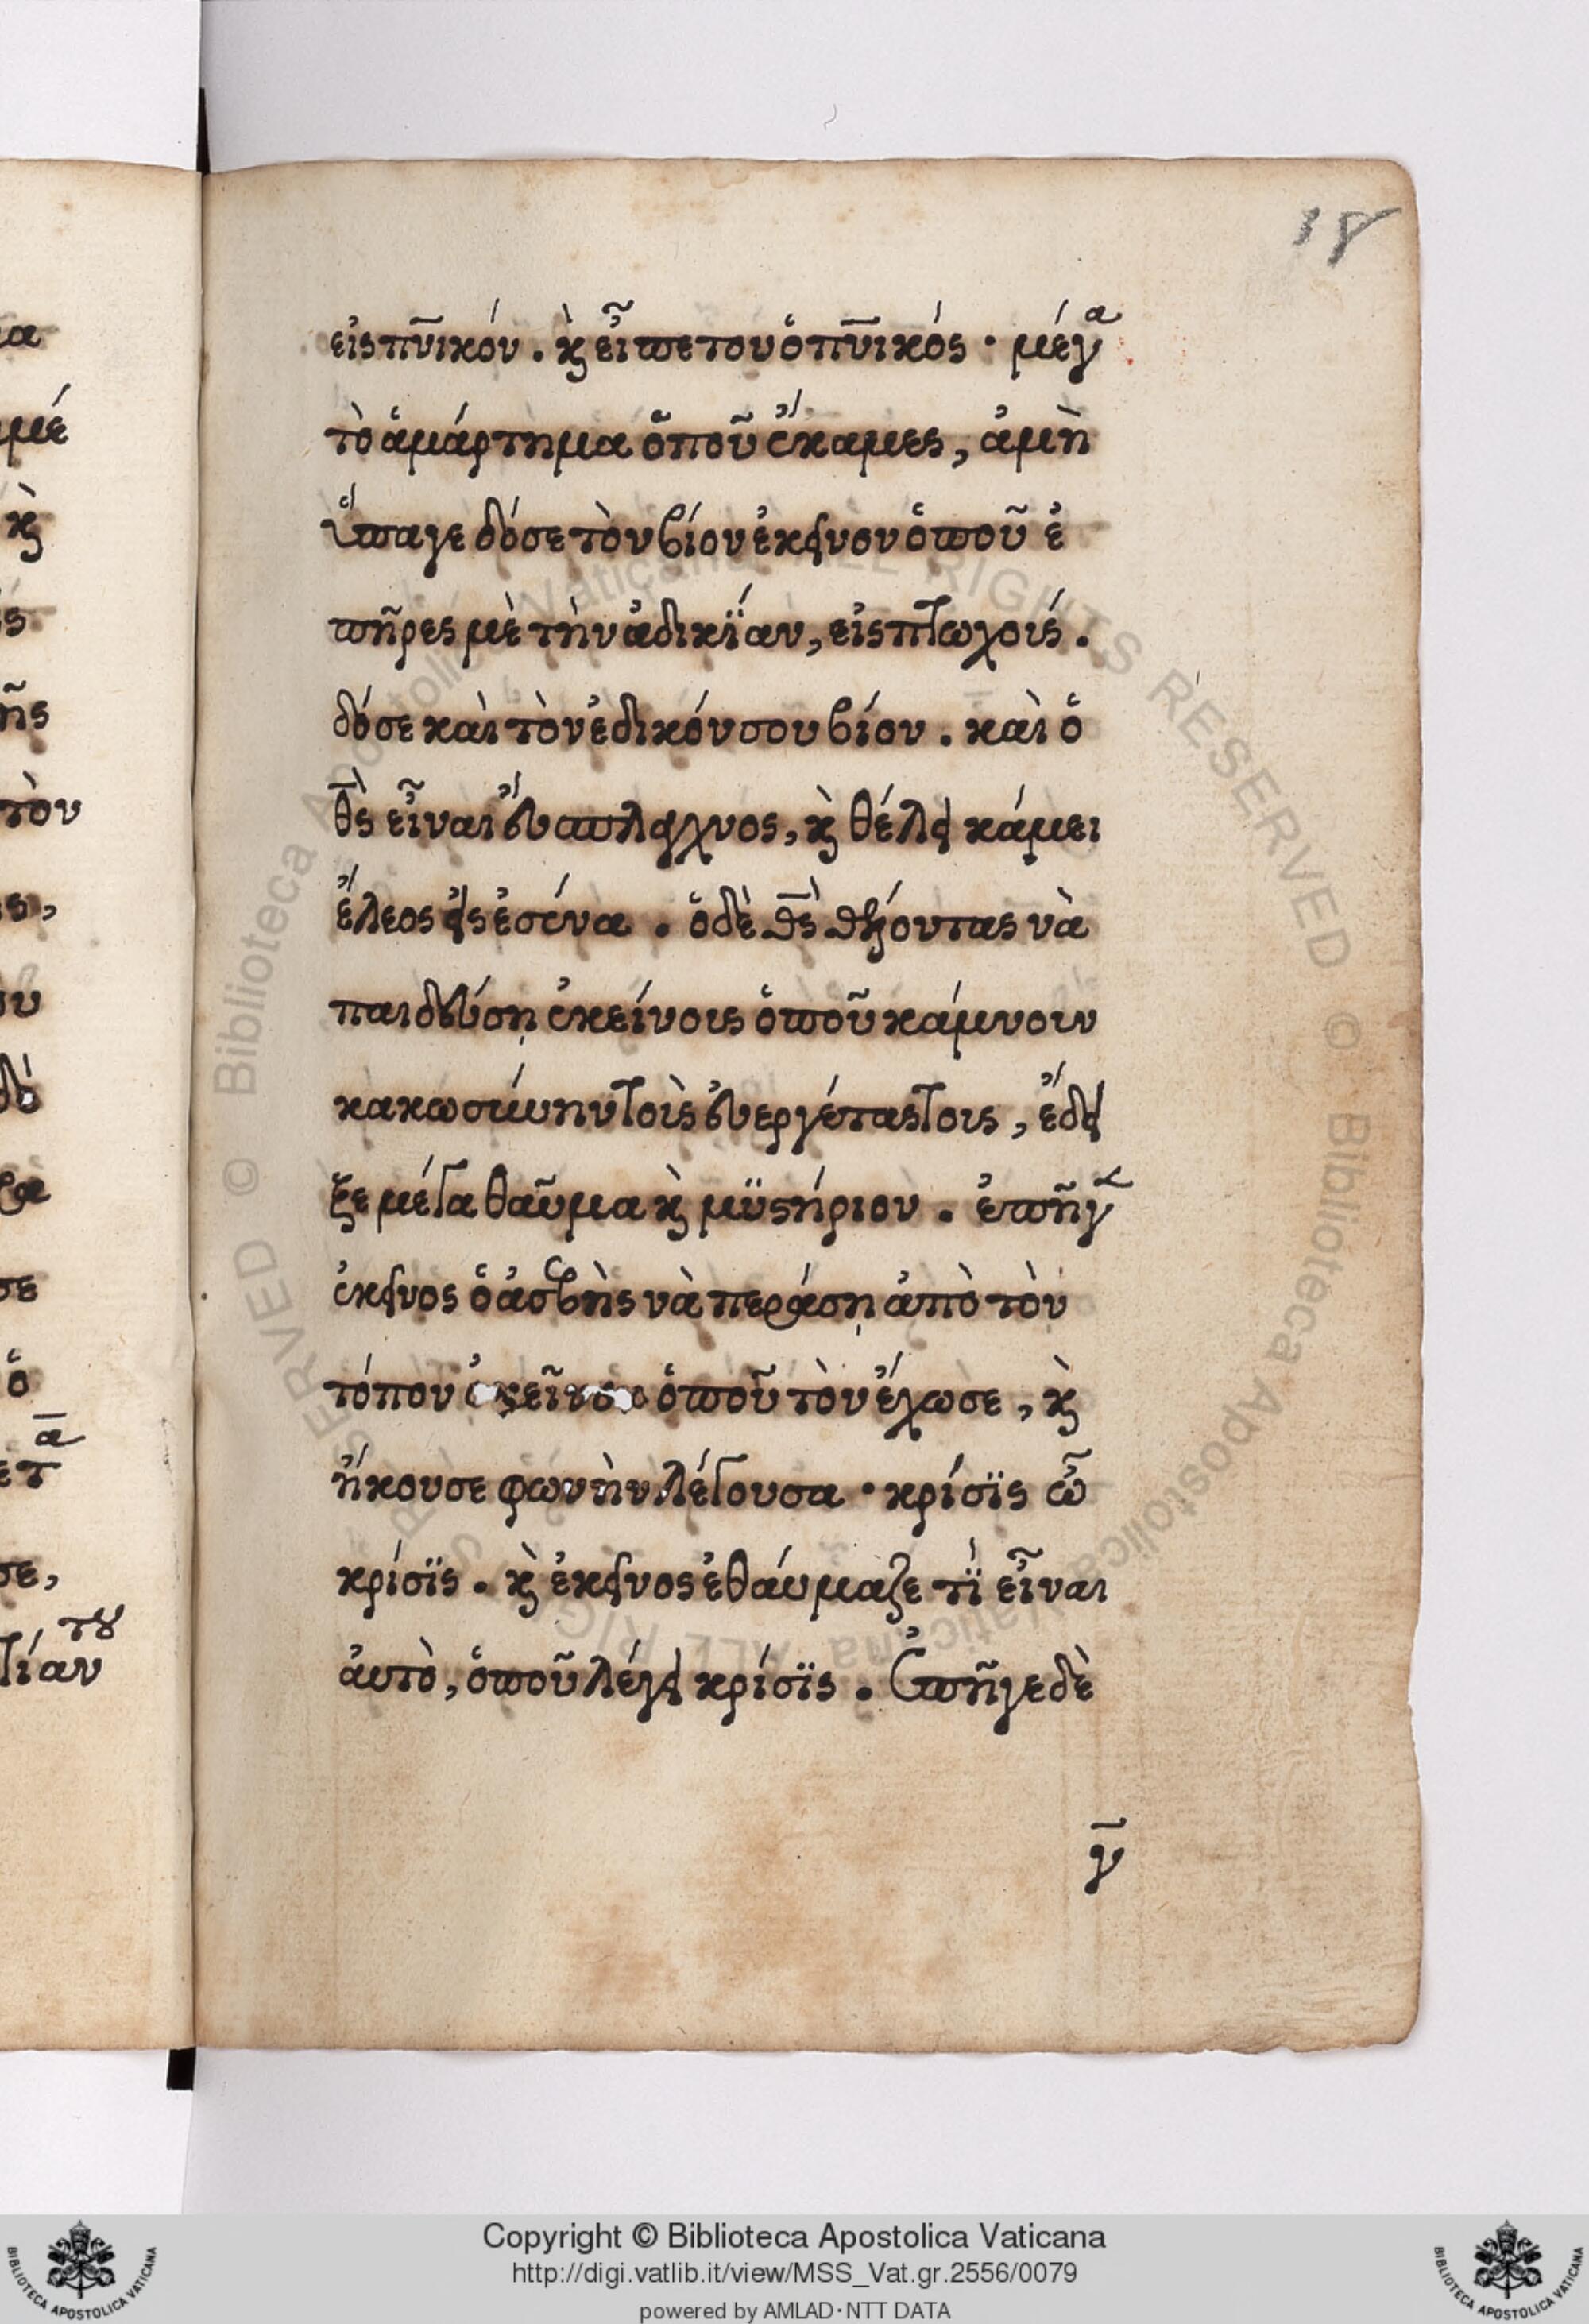 18
εἰς πν̅ικόν. κ̀ εἶπε του ὁ πν̅ικός· μέγα
τὸ ἁμάρτημα ὅπου ἔκαμες, ἀμὴ
ὕπαγε δόσε τὸν βίον ἐκεῖνον ὁποῦ ἐ
πῆρες μὲ τὴν ἀδικΐαν, εἰς πτωχοίς.
δόσε καὶ τὸν ἐδικόν σου βίον. καὶ ὁ
θ̅ς εἶναι ἔυσπλαχνος, κ̀ θέλει κάμει
ἔλεος εἰς ἐσένα. ὁ δὲ θ̅ς θέλοντας νὰ
παιδεύσῃ ἐκείνοις ὁποῦ κάμνουν
κακωσύνην τοὶς ἐυεργέτας τοις, ἔδει
ξε μέγα θαῦμα κ̀ μϋστήριον. ἐπῆγε
ἐκεῖνος ὁ ἀσεβὴς νὰ περάσῃ ἀπὸ τὸν
τόπον ἐκεῖνον ὁποῦ τὸν ἔχωσε, κ̀
ἤκουσε φωνὴν λέγουσα· κρίσϊς ὦ
κρίσϊς. κ̀ ἐκεῖνος ἐθάυμαζε τΐ εἶναι
ἀυτὸ, ὁποῦ λέγει κρίσϊς. Ἐπῆγε δὲ
γ̅
α
μέ
κ̀
ς
ῆς
τὸν
ς,
ου
δὸ
ρα
σε
ὁ
α̅
ετ
σε,
του
τίαν
Copyright © Biblioteca Apostolica Vaticana
http://digi.vatlib.it/view/MSS_Vat.gr.2556/0079
powered by AMLAD·NTT DATA